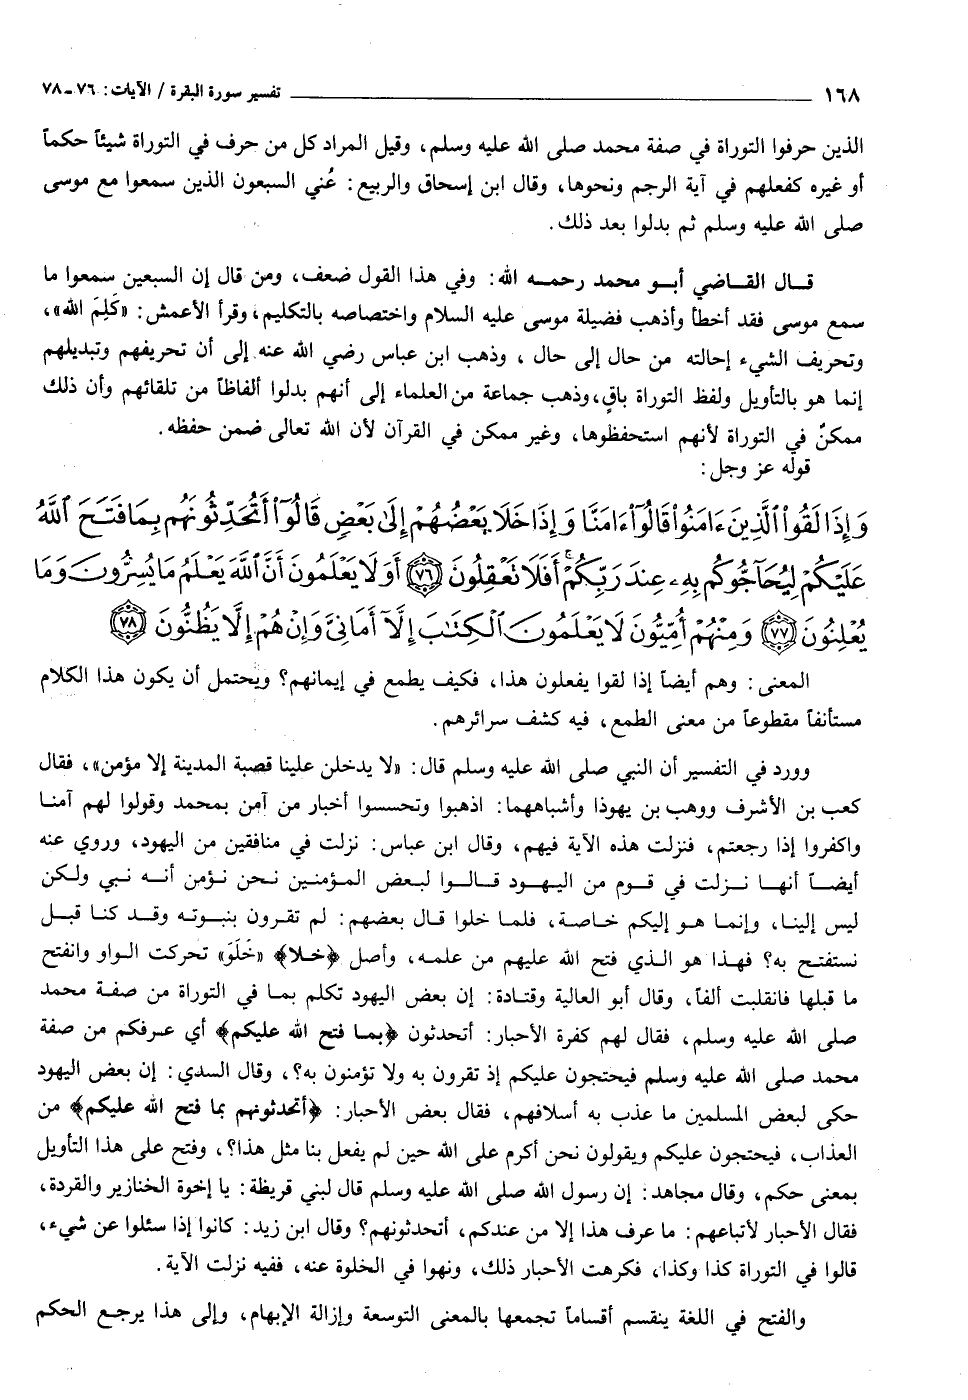 ١٦٨ تفسير سورة البقرة / الآيات: ٧٦-٧٨
الذين حرفوا التوراة في صفة محمد صلى الله عليه وسلم، وقيل المراد كل من حرف في التوراة شيئاً حكماً
أو غيره كفعلهم في آية الرجم ونحوها، وقال ابن إسحاق والربيع: عُني السبعون الذين سمعوا مع موسى
صلى الله عليه وسلم ثم بدلوا بعد ذلك.
قـال القـاضي أبـو محمد رحمـه الله: وفي هذا القول ضعف، ومن قال إن السبعين سمعوا ما
سمع موسى فقد أخطأ وأذهب فضيلة موسى عليه السلام واختصاصه بالتكليم، وقرأ الأعمش: «كَلِمَ الله»،
وتحريف الشيء إحالته من حال إلى حال، وذهب ابن عباس رضي الله عنه إلى أن تحريفهم وتبديلهم
إنما هو بالتأويل ولفظ التوراة باقٍ، وذهب جماعة من العلماء إلى أنهم بدلوا ألفاظاً من تلقائهم وأن ذلك
ممكنٌ في التوراة لأنهم استحفظوها، وغير ممكن في القرآن لأن الله تعالى ضمن حفظه.
قوله عز وجل:
وَإِذَا لَقُواْ ٱلَّذِينَ ءَامَنُواْ قَالُوٓاْ ءَامَنَّا وَإِذَا خَلَا بَعْضُهُمْ إِلَىٰ بَعْضٍ قَالُوٓاْ أَتُحَدِّثُونَهُم بِمَا فَتَحَ ٱللَّهُ
عَلَيْكُمْ لِيُحَآجُّوكُم بِهِۦ عِندَ رَبِّكُمْ ۚ أَفَلَا تَعْقِلُونَ ٧٦ أَوَلَا يَعْلَمُونَ أَنَّ ٱللَّهَ يَعْلَمُ مَا يُسِرُّونَ وَمَا
يُعْلِنُونَ ٧٧ وَمِنْهُمْ أُمِّيُّونَ لَا يَعْلَمُونَ ٱلْكِتَٰبَ إِلَّآ أَمَانِيَّ وَإِنْ هُمْ إِلَّا يَظُنُّونَ ٧٨
المعنى: وهم أيضاً إذا لقوا يفعلون هذا، فكيف يطمع في إيمانهم؟ ويحتمل أن يكون هذا الكلام
مستأنفاً مقطوعاً من معنى الطمع، فيه كشف سرائرهم.
وورد في التفسير أن النبي صلى الله عليه وسلم قال: «لا يدخلن علينا قصبة المدينة إلا مؤمن»، فقال
كعب بن الأشرف ووهب بن يهوذا وأشباههما: اذهبوا وتحسسوا أخبار من آمن بمحمد وقولوا لهم آمنا
واكفروا إذا رجعتم، فنزلت هذه الآية فيهم، وقال ابن عباس: نزلت في منافقين من اليهود، وروي عنه
أيضـاً أنهـا نـزلت في قـوم من اليـهود قـالـوا لبـعض المـؤمنـين نـحن نـؤمن أنـه نـبي ولـكن
ليس إلينا، وإنمـا هـو إليكم خاصـة، فلمـا خلوا قال بعضهم: لم تقـرون بنبـوتـه وقـد كنـا قبـل
نستفتـح به؟ فهـذا هو الـذي فتح الله عليهم من علمـه، وأصل ﴿خـلا﴾ «خَلَوَ» تحركت الـواو وانفتح
ما قبلها فانقلبت ألفـاً، وقال أبو العالية وقتـادة: إن بعض اليهود تكلم بمـا في التوراة من صفـة محمد
صلى الله عليه وسلم، فقال لهم كفرة الأحبار: أتحدثون ﴿بمـا فتح الله عليكم﴾ أي عـرفكم من صفة
محمد صلى الله عليه وسلم فيحتجون عليكم إذ تقرون به ولا تؤمنون به؟، وقال السدي: إن بعض اليهود
حكى لبعض المسلمين ما عذب به أسلافهم، فقال بعض الأحبار: ﴿أتحدثونهم بما فتح الله عليكم﴾ من
العذاب، فيحتجون عليكم ويقولون نحن أكرم على الله حين لم يفعل بنا مثل هذا؟، وفتح على هذا التأويل
بمعنى حكم، وقال مجاهد: إن رسول الله صلى الله عليه وسلم قال لبني قريظة: يا إخوة الخنازير والقردة،
فقال الأحبار لأتباعهم: ما عرف هذا إلا من عندكم، أتحدثونهم؟ وقال ابن زيد: كانوا إذا سئلوا عن شيء،
قالوا في التوراة كذا وكذا، فكرهت الأحبار ذلك، ونهوا في الخلوة عنه، ففيه نزلت الآية.
والفتح في اللغة ينقسم أقساماً تجمعها بالمعنى التوسعة وإزالة الإبهام، وإلى هذا يرجـع الحكم